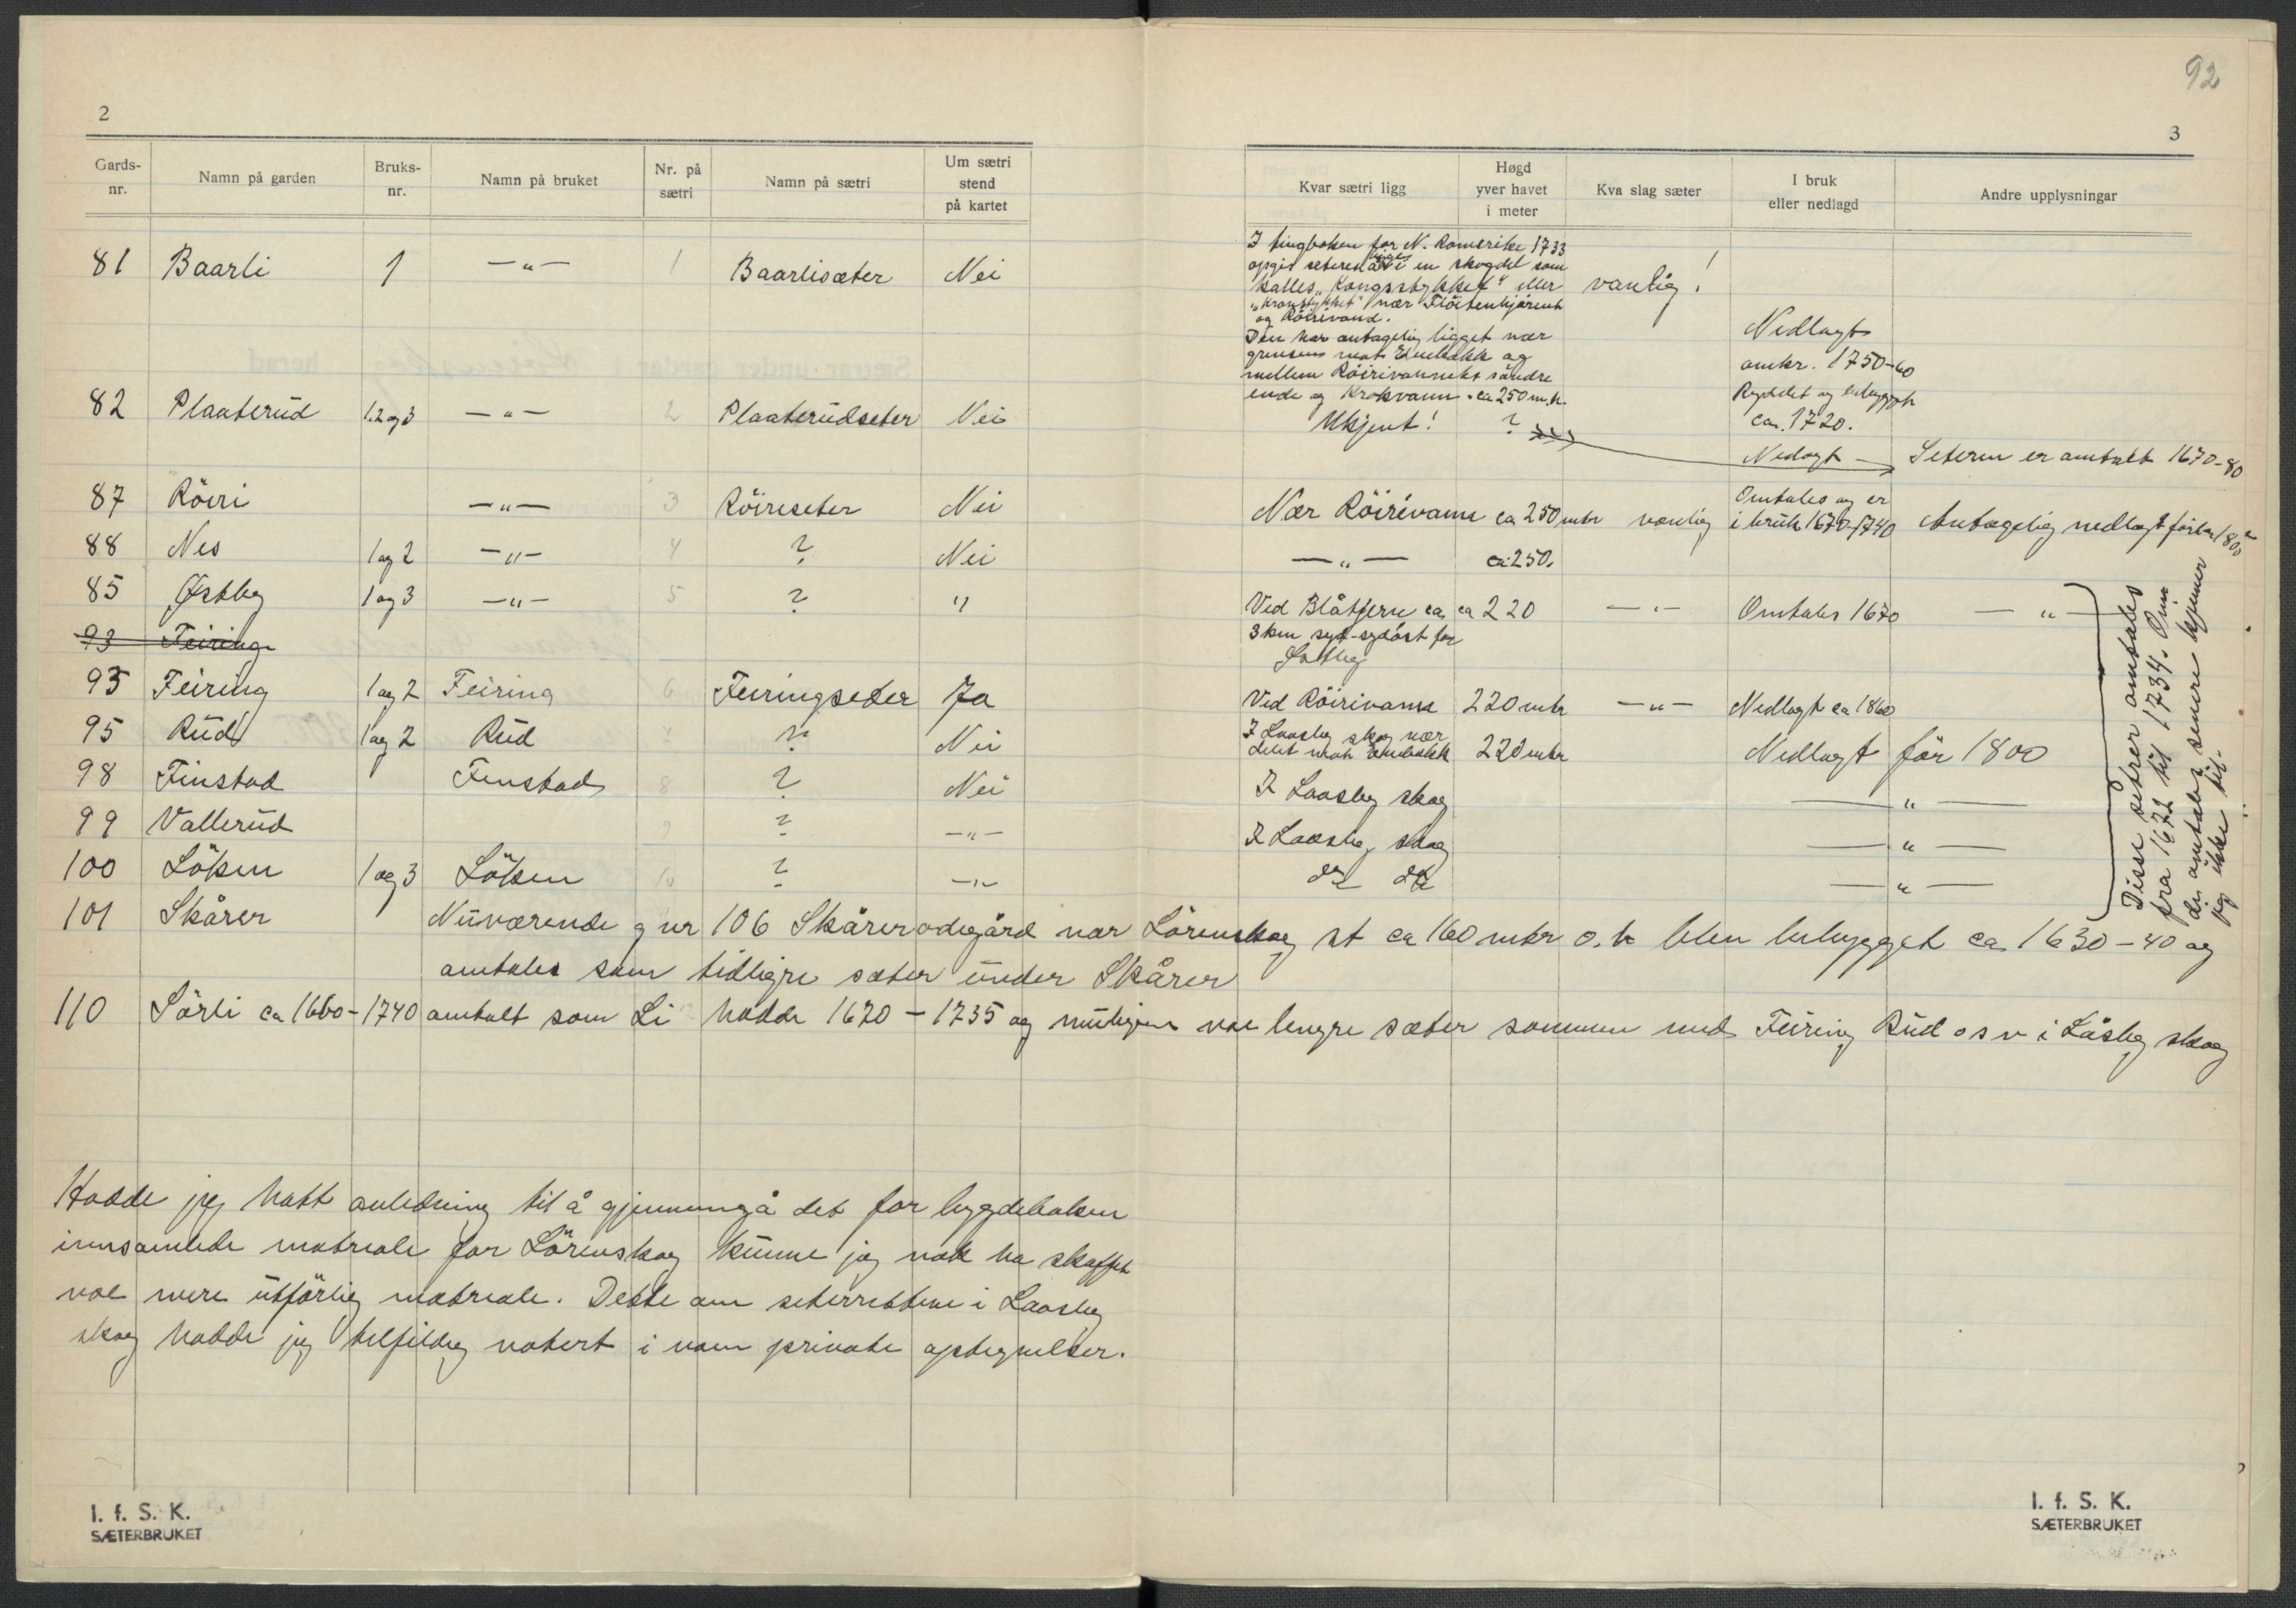 92
2
3
Gards-nr. Namn på garden Bruks-nr. Namn på bruket Nr. på sætri Namn på sætri Um sætri stend på kartet
Kvar sætri ligg Høgd yver havet i meter Kva slag sæter I bruk eller nedlagd Andre upplysningar
81 Baarli 1 —„— 1 Baarlisæter Nei
I tingboken for N. Romerike 1733
opgis seteren å ligge i en skogdel som
kalles „Kongsstykket" eller vanlig!
„Kronstykket" nær Flöitenkjernet
og Röirivand.
Den har antagelig ligget nær Nedlagt
grensen mot Enebakk og omkr. 1750-60
mellem Röirivannets söndre Ryddet og bebygget
ende og Krokvann. ca 250 m.h. ca. 1720.
82 Plaaterud 1.2 og 3 —„— 2 Plaaterudseter Nei
Ukjent! ? Nedlagt — Seteren er omtalt 1670-80
87 Röiri —„— 3 Röireseter Nei
Nær Röirivann ca 250 mtr vanlig Omtales og er i bruk 1670-1740 Antagelig nedlagt för ca 1800
88 Nes 1 og 2 —„— 4 ? Nei
—„— ca 250.
85 Østby 1 og 3 —„— 5 ? "
Ved Blåtjern ca ca 220 —„— Omtales 1670 —„—
3 km syd-sydöst for
Östby
93 Feiring
93 Feiring 1 og 2 Feiring 6 Feiringseter Ja
Ved Röirivann 220 mtr —„— Nedlagt ca 1860
95 Rud 1 og 2 Rud 7 ? Nei
I Laasby skog nær
delet mot Enebakk 220 mtr Nedlagt för 1800
98 Finstad Finstad 8 ? Nei
I Laasby skog —„—
99 Vallerud 9 ? —„—
I Laasby skog —„—
100 Löken 1 og 3 Löken 10 ? —„—
do do —„—
Disse setrer omtales
fra 1672 til 1734. Om
de omtales senere kjenner
jeg ikke til.
101 Skårer Nuværende g nr 106 Skårer ödegård nær Lörenskog st ca 160 mtr o.h blev bebygget ca 1630-40 og
omtales som tidligre sæter under Skårer
110 Sörli ca 1660-1740 omtalt som Li hadde 1670-1735 og muligens noe lengre sæter sammen med Feiring Rud osv i Låsby skog
Hadde jeg hatt anledning til å gjennemgå det for bygdeboken
innsamlede matriale for Lörenskog kunne jeg nok ha skaffet
noe mere utförlig matriale. Dette om seterrettene i Laasby
skog hadde jeg tilfeldig notert i noen private optegnelser.
I. f. S. K.
SÆTERBRUKET
I. f. S. K.
SÆTERBRUKET